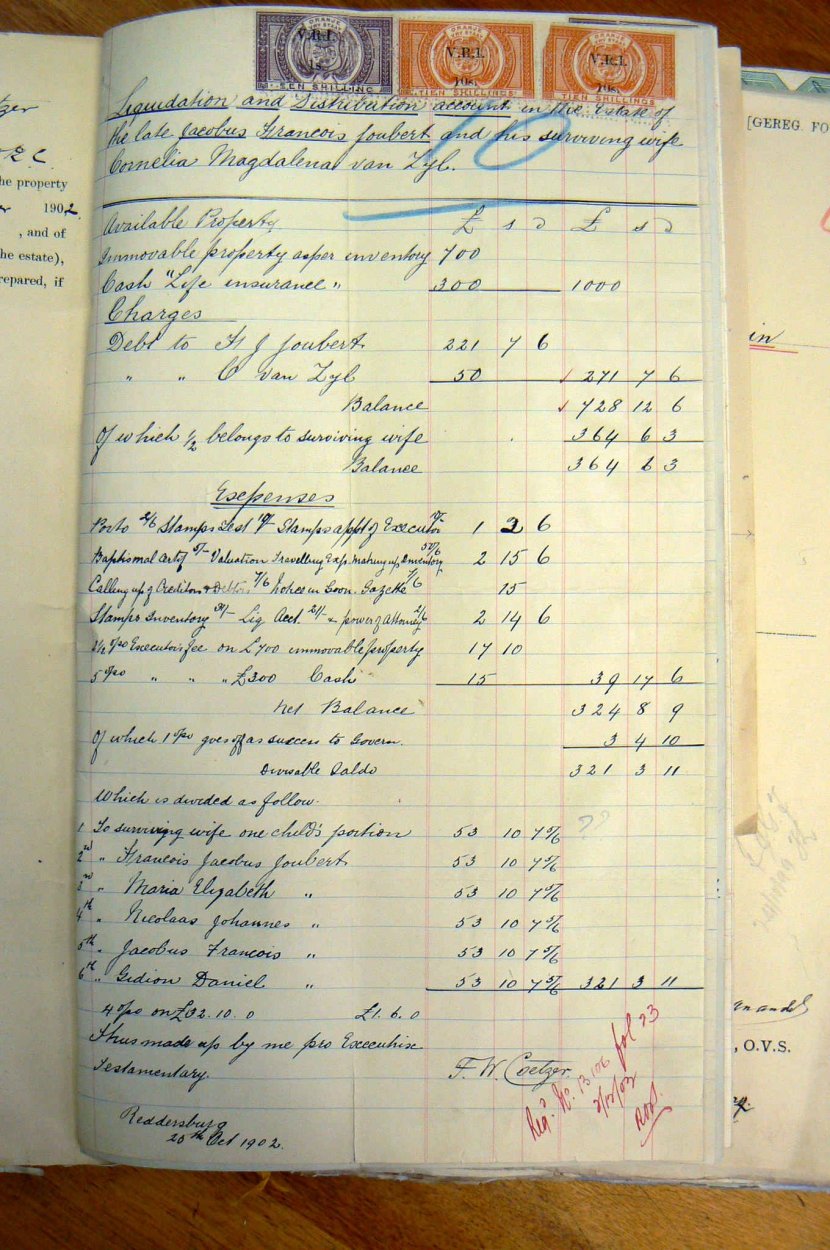 ORANJE VRY STAAT ORANJE VRY STAAT ORANJE VRY STAAT
V.R.I. V.R.I. V.R.I.
1s. 10s. 10s.
EEN SHILLING TIEN SHILLINGS TIEN SHILLINGS
Liquidation and Distribution account in the Estate of
the late Jacobus Francois Joubert and his surviving wife
Cornelia Magdalena van Zyl.
10
Available Property £ s d £ s d
Immovable property as per inventory 700
Cash "Life insurance" 300 1000
Charges
Debt to F J Joubert 221 7 6
" " C van Zyl 50 271 7 6
Balance 728 12 6
Of which 1/2 belongs to surviving wife 364 6 3
Balance 364 6 3
Expenses
Porto 2/6 Stamps Test 10/- Stamps appt of Executor 10/- 1 2 6
Baptismal Certf 5/- Valuation Travelling Exp. making up Inventory 50/6 2 15 6
Calling up of Creditors & Debtors 7/6 notice in Goon. Gazette 7/6 15
Stamps Inventory Liq Acct. 21/- & power of Attorney 2/6 2 14 6
2 1/2 o/po Executor's fee on £700 immovable property 17 10
5 o/po " " " £300 Cash 15 39 17 6
Net Balance 324 8 9
Of which 1 o/po goes off as success to Govern. 3 4 10
Divisable Saldo 321 3 11
Which is divided as follow.
1 To surviving wife one child's portion 53 10 7 5/6 ??
2nd " Francois Jacobus Joubert 53 10 7 5/6
3rd " Maria Elizabeth " 53 10 7 5/6
4th " Nicolaas Johannes " 53 10 7 5/6
5th " Jacobus Francois " 53 10 7 5/6
6th " Gidion Daniel " 53 10 7 5/6 321 3 11
4 o/po on £32.10.0 £1.6.0
Thus made up by me pro Executrix
Testamentary. F. W. Coetzer.
Regd. No. 13106 fol 23
2/12/02
Reddersburg
20th Oct 1902.
he property
1902
, and of
he estate),
repared, if
[GEREG. FO
in
, O.V.S.